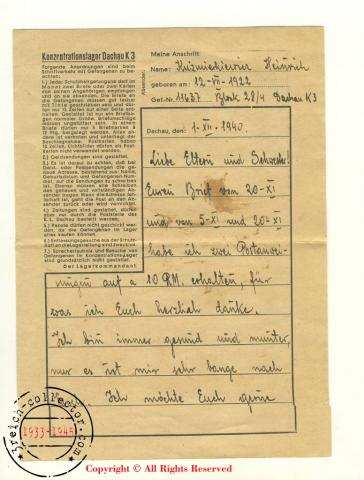 Konzentrationslager Dachau K 3
Folgende Anordnungen sind beim
Schriftverkehr mit Gefangenen zu be-
achten:
1.) Jeder Schutzhaftgefangene darf im
Monat zwei Briefe oder zwei Karten
von seinen Angehörigen empfangen
und an sie absenden. Die Briefe an
die Gefangenen müssen gut lesbar
mit Tinte geschrieben sein und dürfen
nur 15 Zeilen auf einer Seite ent-
halten. Gestattet ist nur ein Briefbo-
gen normaler Größe. Briefumschläge
müssen ungefüttert sein. In einem
Briefe dürfen nur 5 Briefmarken à
12 Pfg. eingelegt werden. Alles an-
dere ist verboten und unterliegt der
Beschlagnahme. Postkarten haben
10 Zeilen. Lichtbilder dürfen als Post-
karten nicht verwendet werden.
2.) Geldsendungen sind gestattet.
3.) Es ist darauf zu achten, daß bei
Geld- oder Postsendungen die ge-
naue Adresse, bestehend aus Name,
Geburtsdatum und Gefangenen-Num-
mer, auf die Sendungen zu schreiben
ist.
4.) Zeitungen sind gestattet, dürfen
aber nur durch die Poststelle des
K. L. Dachau bestellt werden.
5.) Pakete dürfen nicht geschickt wer-
den, da die Gefangenen im Lager
alles kaufen können.
6.) Entlassungsgesuche aus der Schutz-
haft an die Lagerleitung sind zwecklos.
7.) Sprecherlaubnis und Besuche von
Gefangenen im Konzentrationslager
sind grundsätzlich nicht gestattet.
Der Lagerkommandant.
Absender:
Meine Anschrift:
Name: Kuźmierkiewicz Heinrich
geboren am: 12-VII-1922
Gef.-Nr. 11637 Block 28/4 Dachau K3
Dachau, den 1-XII-1940.
Liebe Eltern und Schwester!
Euren Brief vom 20-XI
und vom 5-XI und 20-XI
habe ich zwei Postanwei-
sungen auf a 10 RM. erhalten, für
was ich Euch herzlich danke.
Ich bin immer gesund und munter,
nur es ist mir sehr bange nach
Ich möchte Euch gerne
3reich-collector.com
1933-1945
Copyright © All Rights Reserved